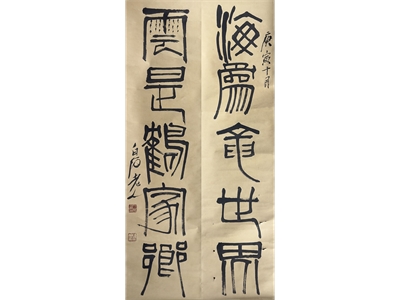 庚寅十月
海爲龍世界
雲是鶴家鄉
白石老人